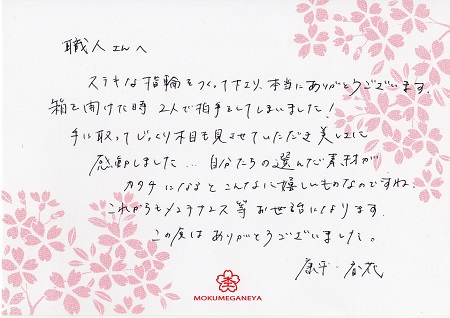 職人さんへ
ステキな指輪をつくって下さり、本当にありがとうございます。
箱を開けた時 2人で拍手をしてしまいました!
手に取ってじっくり木目も見させていただき 美しさに
感動しました… 自分たちの選んだ素材が
カタチになると こんなに嬉しいものなのですね。
これからもメンテナンス等 お世話になります。
この度は ありがとうございました。
康平・春花
MOKUMEGANEYA